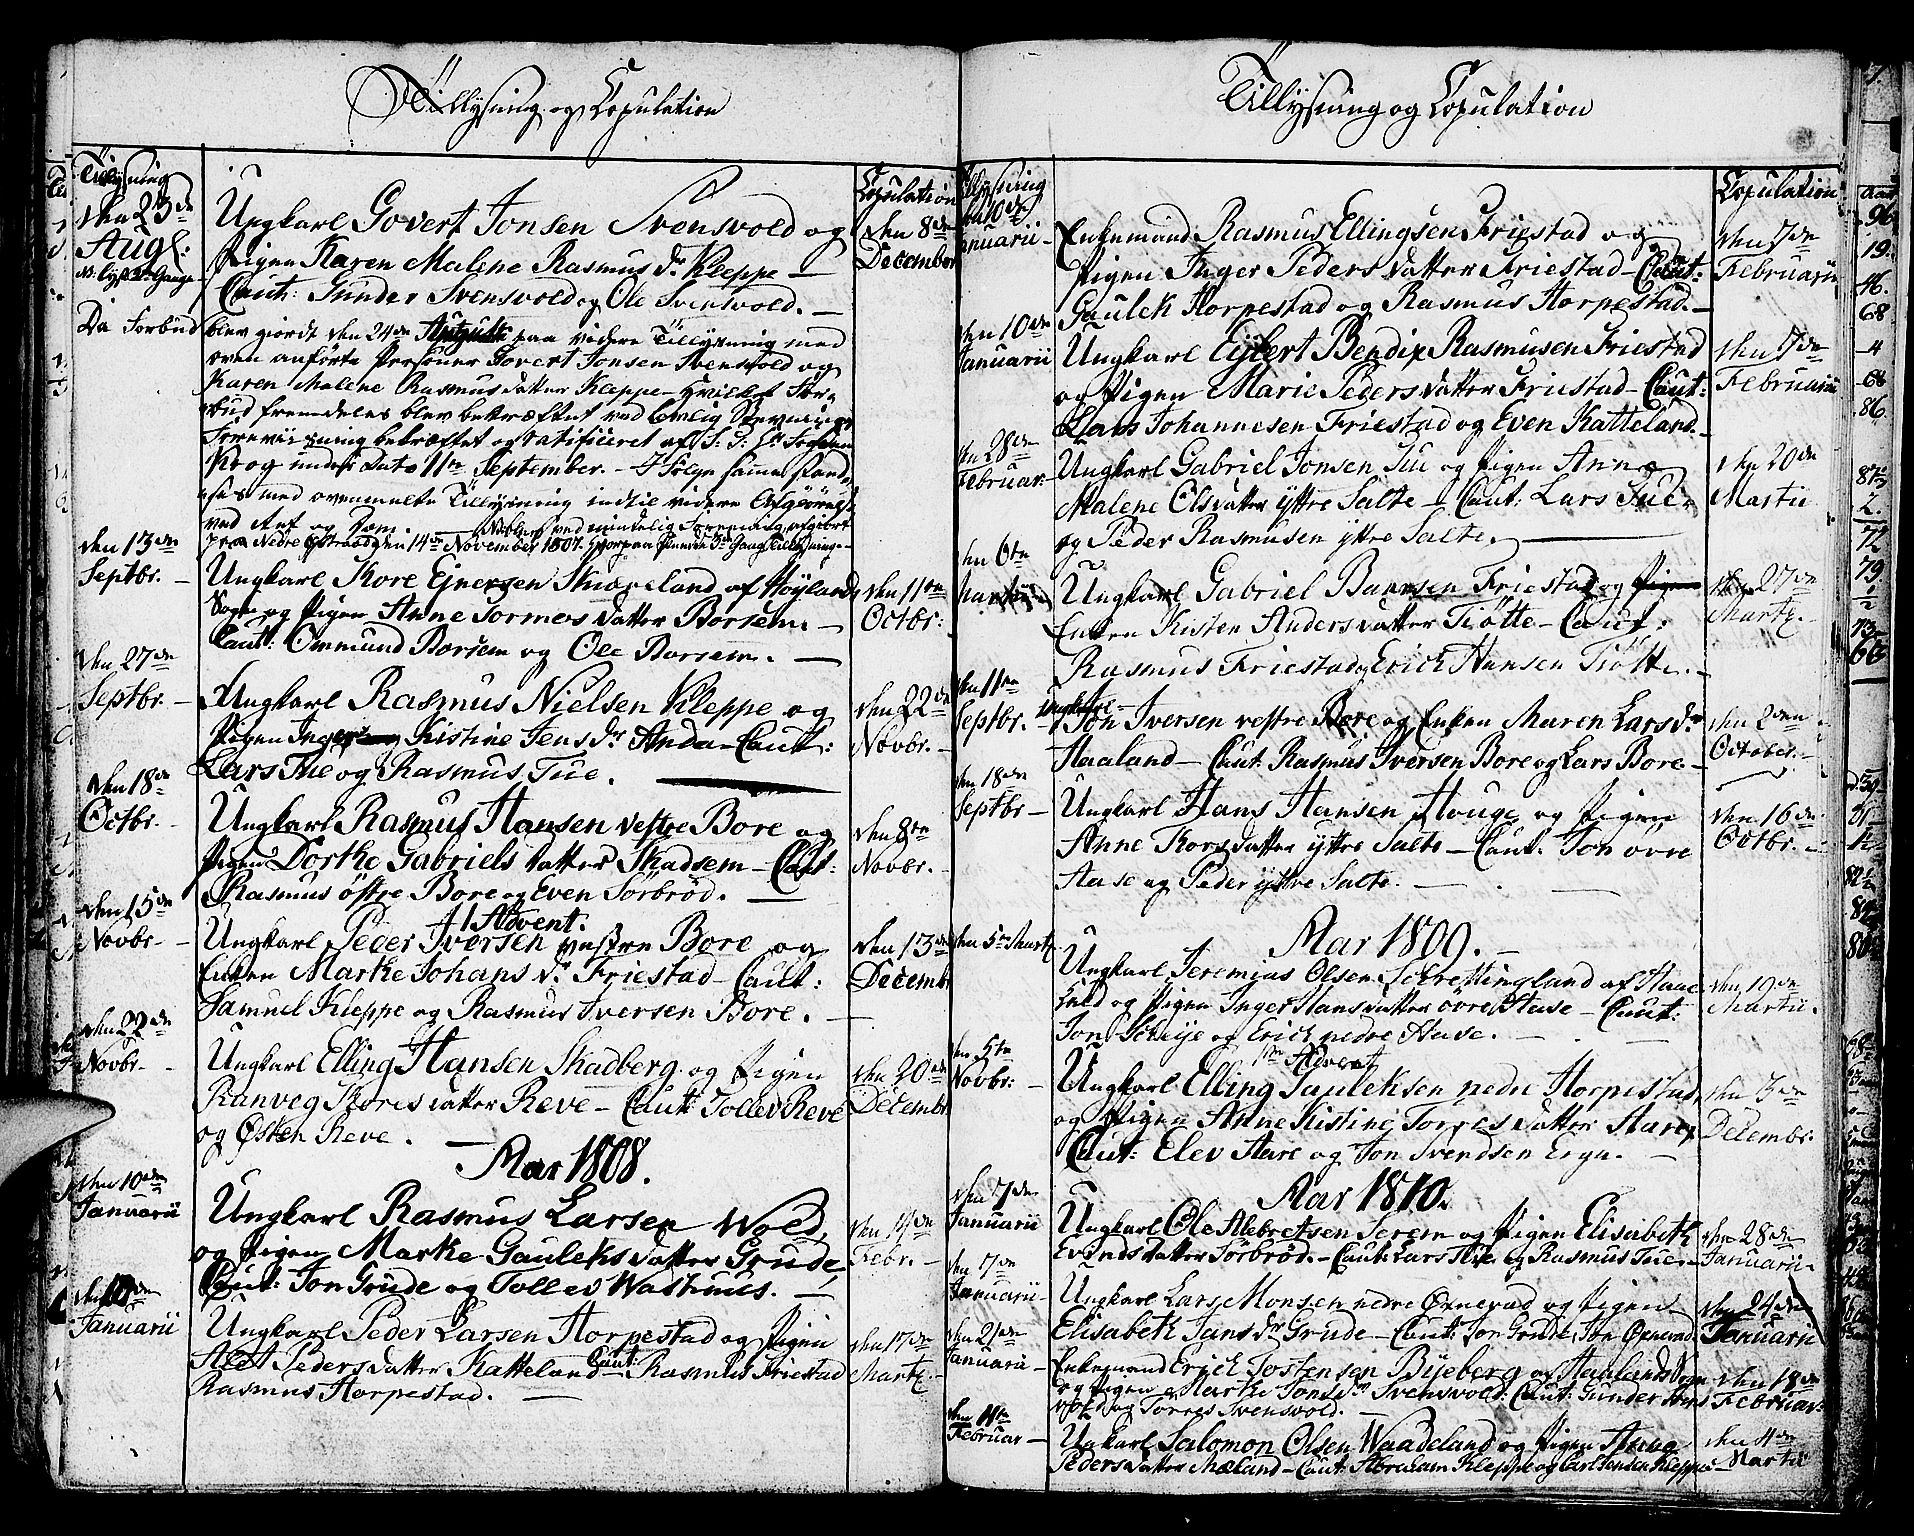 Tillysning og Copulation
Tillysning
Copulation
den 23de
Augl:
Ungkarl Govert Jonsen Svensvold og
Pigen Karen Malene Rasmus dr Kleppe —
Caut: Gunder Svensvold og Ole Svensvold. —
den 8de
December
Da Forbud
blev giordt den 24de Augusti paa videre Tillysning med
oven anførte Personer Govert Jonsen Svensvold og
Karen Malene Rasmusdatter Kleppe — Hvilket For-
bud fremdeles blev bekræftet ved lovlig
bekræftet og ratificeret af
Krog under Dato 11te September. — I Følge samme stand-
ses med ovenmelte Tillysning indtil videre Afgiørelse
ved Ret og Dom.
14de November 1807.
den 13de
Septbr. —
Ungkarl Kore Ejnersen Skiæveland af Høyland
Sogn og Pigen Anne Tormosdatter Borsem. —
Caut: Ommund Borsem og Ole Borsem. —
den 11te
Octbr:
den 27de
Septbr. —
Ungkarl Rasmus Nielsen Kleppe og
Pigen Kistine Jens dr Anda — Caut:
Lars Tue og Rasmus Tue. —
den 22de
Novbr. —
den 18de
Octbr. —
Ungkarl Rasmus Hansen vestre Bore og
Pigen Dorthe Gabriels datter Skadsem — Caut:
Rasmus østre Bore og Even Sørbrød. —
den 8de
Novbr. —
den 15de
Novbr. —
1 Advent.
Ungkarl Peder Iversen vestre Bore og
Enken Marthe Johans dr Friestad — Caut:
Samuel Kleppe og Rasmus Iversen Bore. —
den 13de
Decembr
den 22de
Novbr. —
Ungkarl Elling Hansen Skadberg og Pigen
Ranveg Koresdatter Reve — Caut: Tollev Reve
og Østen Reve. —
den 20de
Decembr
Aar 1808.
den 10de
Januarii
Ungkarl Rasmus Larsen Wold,
og Pigen Marthe Gauleksdatter Grude,
Caut: Jon Grude og Tollev Wasthuus. —
den 14de
Febr. —
den 10de
Januarii
Ungkarl Peder Larsen Horpestad og Pigen
Pedersdatter Katteland — Caut: Rasmus Friestad
Rasmus Horpestad. —
den 17de
Marti. —
Tillysning og Copulation
Tillysning
Copulation
den 10de
Januarii —
Enkemand Rasmus Ellingsen Friestad og
Pigen Inger Peders datter Friestad — Caut:
Gaulek Horpestad og Rasmus Horpestad. —
den 7de
Februarii
den 10de
Januarii
Ungkarl Ejlert Bendix Rasmusen Friestad
og Pigen Marie Pedersdatter Friestad — Caut:
Lars Johannesen Friestad og Even Katteland. —
den 7de
Februarii
den 28de
Februar. —
Ungkarl Gabriel Jonsen Tue og Pigen Anna
Malene Olsdatter yttre Salte — Caut: Lars Tue
og Peder Rasmusen yttre Salte. —
den 20de
Martii
den 6te
Martii
Ungkarl Gabriel Friestad og
Enken Kisten Andersdatter Tiøtte — Caut:
Rasmus Friestad og Erick Hansen Tiøtte. —
den 27de
Marti. —
den 11te
Septbr. —
Ungkarl
Jon Iversen vestre Bore og Enken Maren Lars dr
Haaland — Caut: Rasmus Iversen Bore og Lars Bore —
den 2den
October. —
den 18de
Septbr —
Ungkarl Hans Hansen Houge og Pigen
Anne Korsdatter yttre Salte — Caut: Jon øvre
Hase og Peder yttre Salte. —
den 16de
Octbr. —
Aar 1809. —
den 5te Marti
Ungkarl Jeremias Olsen af Haae
Giæld og Pigen Inger Hansdatter øvre Hase — Caut:
Jon og Erich nedre Hase. —
den 19de
Martii.
den 5te
Novbr: —
1ste Advent
Ungkarl Elling Gauleksen nedre Horpestad
og Pigen Anne Kistine Torresdatter Hare,
Caut: Elev Hare og Jon Svendsen Erga. —
den 3de
Decembr.
Aar 1810.
den 7de
Januarii
Ungkarl Ole Serem og Pigen Elisabeth
Evindsdatter Sørbrød. — Caut: Lars Tue og Rasmus Tue. —
den 28de
Januarii. —
den 7de
Januarii —
Ungkarl Lars Monsen nedre Ørnevad og Pigen
Elisabeth Jans dr Grude — Caut: Jon Grude, Jon Ørnevad
den 24de
Januarii
den 21de
Januarii —
Enkemand Erick Torstensen Bijeberg af Haalands Sogn
og Pigen Marthe Jons dr Svensvold: Caut: Gunder Svens-
vold og Torres Svensvold. —
den 18de
Februar:
den 4de
Februar —
Ungkarl Salomon Olsen Waadeland og Pigen
Pedersdatter Mæland — Caut: Abraham Kleppe og Carl Jensen Kleppe —
den 4de
Martii